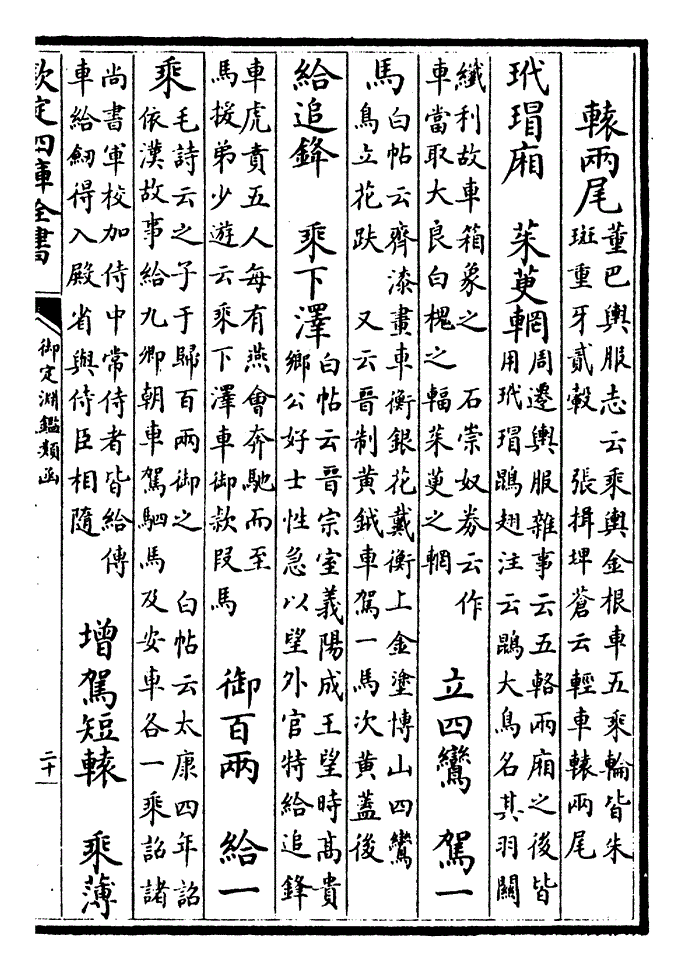 轅兩尾董巴輿服志云乘輿金根車五乘輪皆朱
班重牙貳轂　張揖埤蒼云輕車轅兩尾
玳瑁廂　茱萸輞周遷輿服雜事云五輅兩廂之後皆
用玳瑁鵾翅注云鵾大鳥名其羽闗
纖利故車箱象之　石崇奴券云作
車當取大良白槐之輻茱萸之輞
立四鸞　駕一
馬白帖云齊漆畫車衡銀花戴衡上金塗博山四鸞
鳥立花趺　又云晉制黃鉞車駕一馬次黃蓋後
給追鋒　乘下澤白帖云晉宗室義陽成王望時髙貴
鄉公好士性急以望外官特給追鋒
車虎賁五人每有燕會奔馳而至
馬援弟少遊云乘下澤車御款段馬
御百兩　給一
乘毛詩云之子于歸百兩御之　白帖云太康四年詔
依漢故事給九卿朝車駕駟馬及安車各一乘詔諸
尚書軍校加侍中常侍者皆給傳
車給劒得入殿省與侍臣相隨
增駕短轅　乘薄
欽定四庫全書
御定淵鑑類函
二十